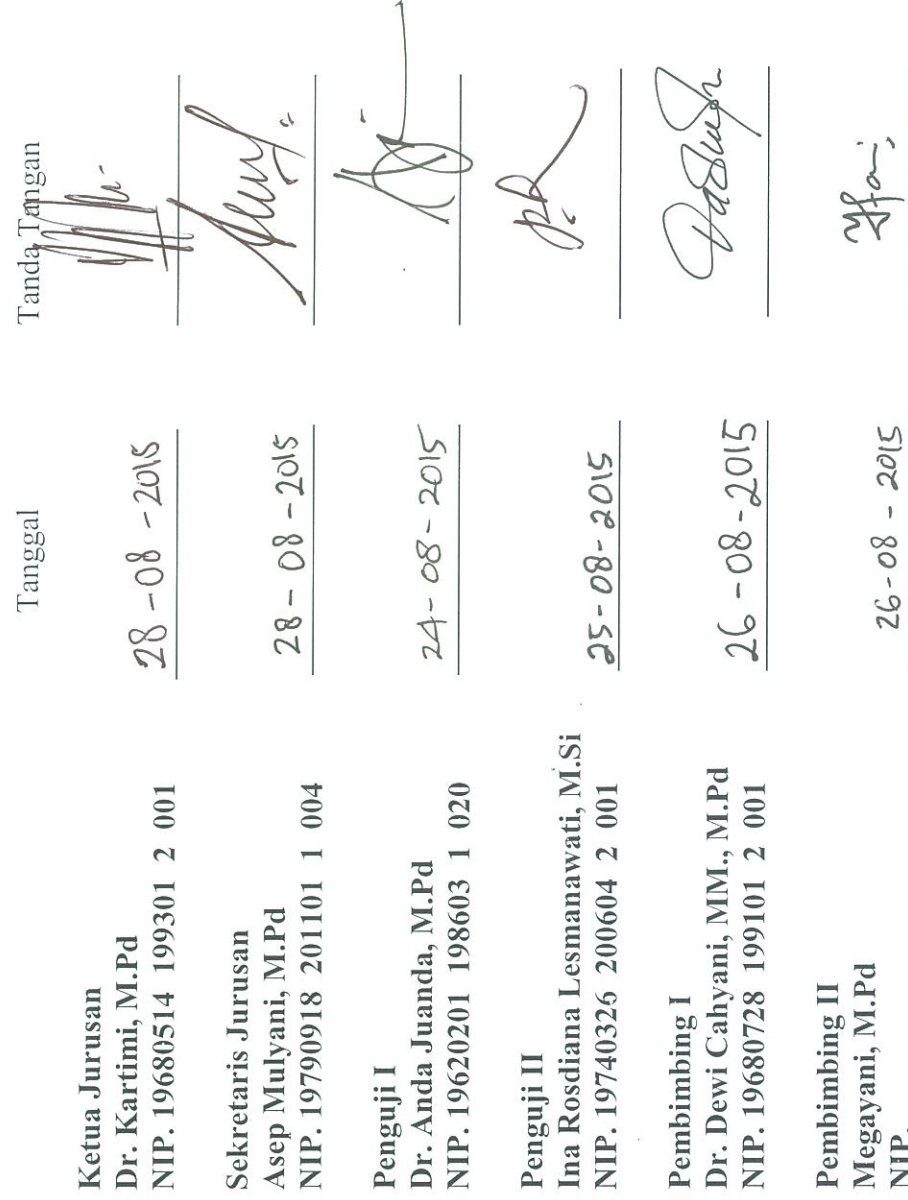 Tanggal Tanda Tangan
Ketua Jurusan
Dr. Kartimi, M.Pd
NIP. 19680514 199301 2 001 28 - 08 - 2015
Sekretaris Jurusan
Asep Mulyani, M.Pd
NIP. 19790918 201101 1 004 28 - 08 - 2015
Penguji I
Dr. Anda Juanda, M.Pd
NIP. 19620201 198603 1 020 24 - 08 - 2015
Penguji II
Ina Rosdiana Lesmanawati, M.Si
NIP. 19740326 200604 2 001 25 - 08 - 2015
Pembimbing I
Dr. Dewi Cahyani, MM., M.Pd
NIP. 19680728 199101 2 001 26 - 08 - 2015
Pembimbing II
Megayani, M.Pd
NIP. 26 - 08 - 2015